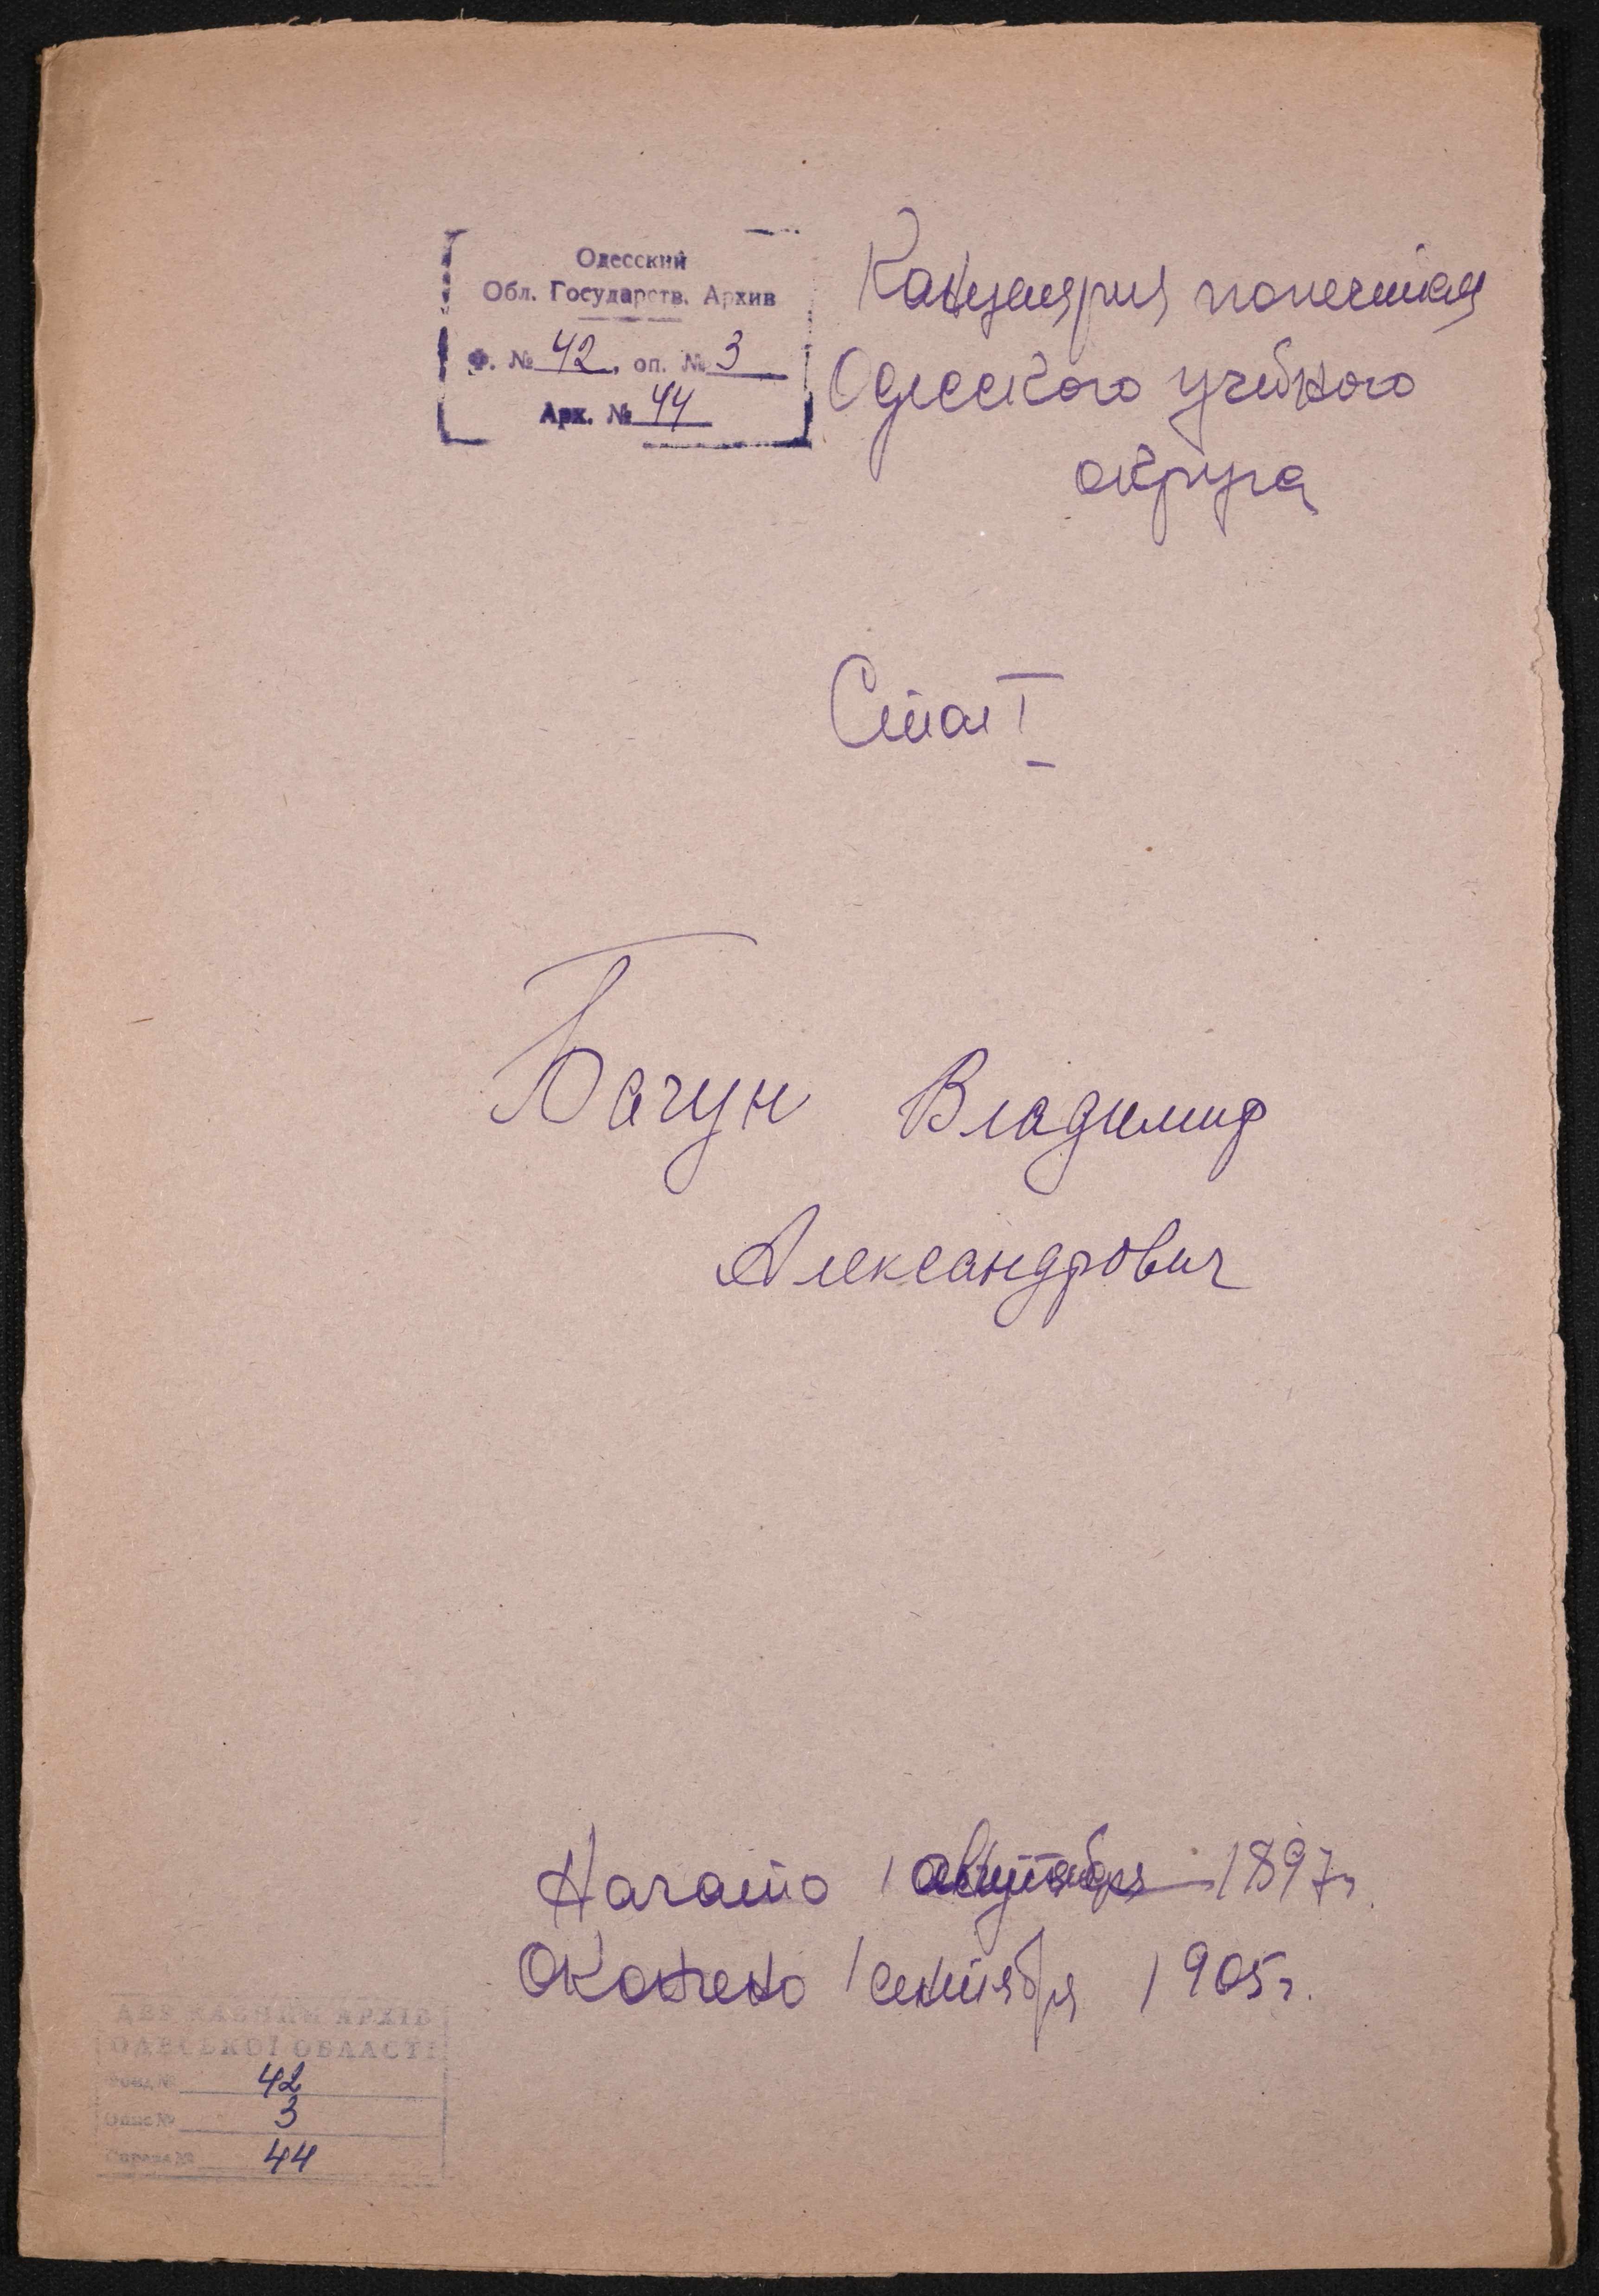 Одесский
Обл. Государств. Архив
Ф. № 42, оп. № 3
Арх. № 44
Канцелярия попечителя
Одесского учебного
округа
Стол I
Бачун Владимир
Александрович
Начато 1 1897 г.
Окончено 1 сентября 1905 г.
ДЕРЖАВНИЙ АРХІВ
ОДЕСЬКОЇ ОБЛАСТІ
Фонд № 42
Опис № 3
Справа № 44